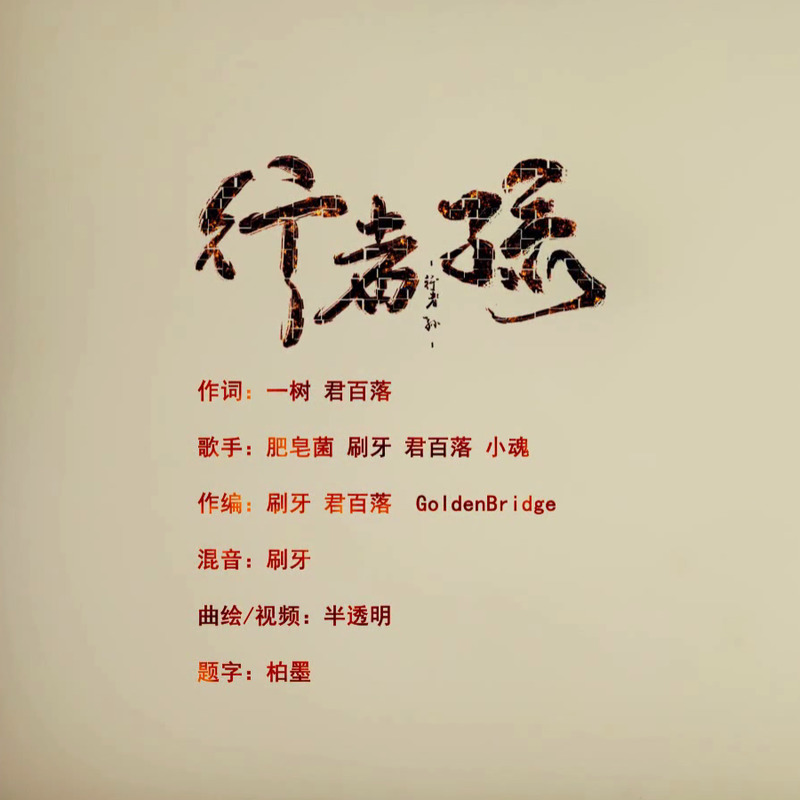 行者孫
行者孙
作词：一树 君百落
歌手：肥皂菌 刷牙 君百落 小魂
作编：刷牙 君百落 GoldenBridge
混音：刷牙
曲绘/视频：半透明
题字：柏墨